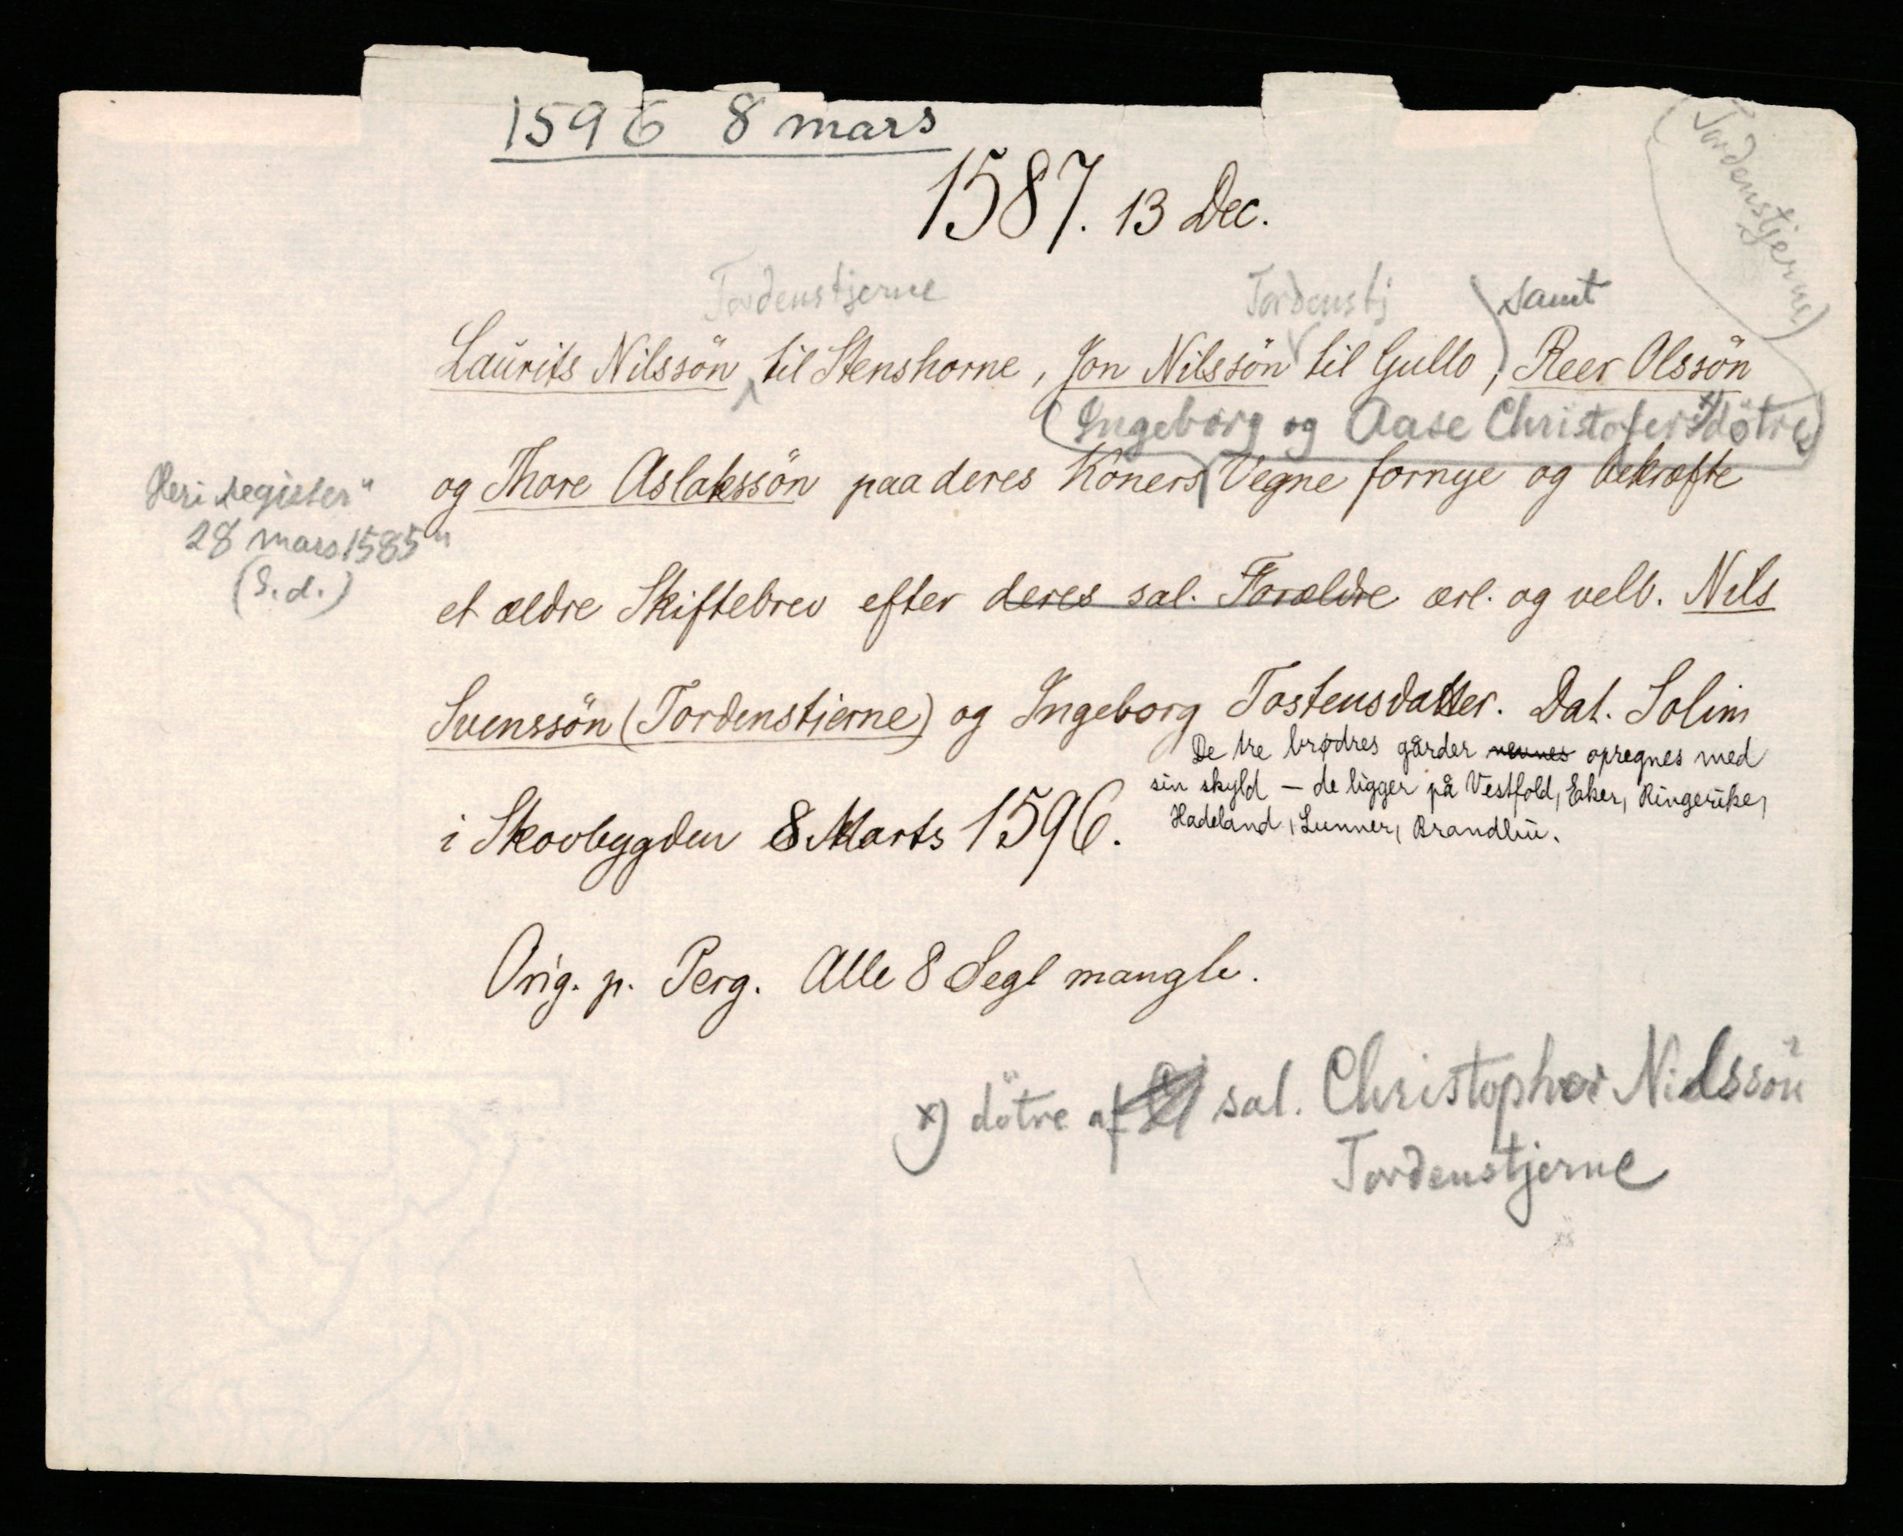 1596 8 mars
1587. 13 Dec.
(Tordenstjerne)
Tordenstjerne Tordenstj samt
Laurits Nilssön til Stenshorne, Jon Nilssön til Gullo, Reer Olssön
(Ingeborg og Aase Christofersdötre x)
og Thore Aslakssön paa deres Koners Vegne fornye og bekræfte
Heri „register"
28 mars 1585"
(S.d.)
et ældre Skiftebrev efter deres sal. Forældre ærl. og velb. Nils
Svenssön (Tordenstjerne) og Ingeborg Tostensdatter. Dat. Solim
De tre brødres gårder nevnes opregnes med
sin skyld — de ligger på Vestfold, Eker, Ringerike,
Hadeland, Lunner, Brandbu.
i Skovbygden 8 Marts 1596.
Orig. p. Perg. Alle 8 Segl mangle.
x) dötre af sal. Christopher Nilssön
Tordenstjerne